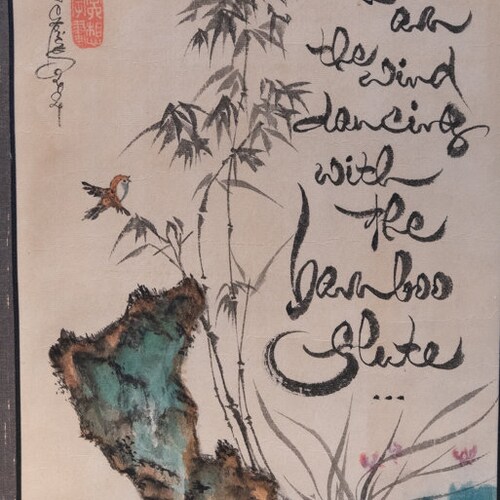 am
the wind
dancing
with
the
bamboo
flute
...